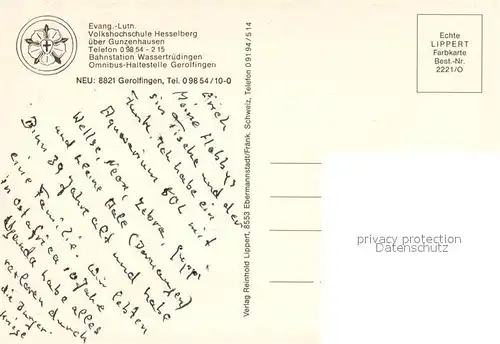 Evang.-Luth.
Volkshochschule Hesselberg
über Gunzenhausen
Telefon 0 98 54 - 2 15
Bahnstation Wassertrüdingen
Omnibus-Haltestelle Gerolfingen
NEU: 8821 Gerolfingen, Tel. 0 98 54 / 10-0
Echte
LIPPERT
Farbkarte
Best.-Nr.
2221/O
Verlag Reinhold Lippert, 8553 Ebermannstadt/Fränk. Schweiz, Telefon 0 91 94 / 5 14
Meine Hobbys
sin Fische und der
Funk. Ich habe ein
Aquarium 80L mit
Wellse, Neon, Zebra,
und kleine Aale (Dornaugen)
Binn 39 Jahre alt und habe
eine Familie. Wir lebten
in Ostafrika 10 Jahre
Uganda habe alles
verloren durch
die Bürger
kriege
privacy protection
akpool.de